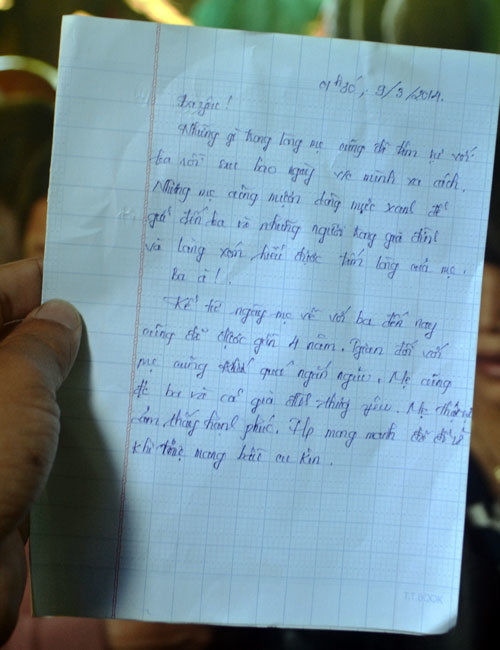 01h30, 9/3/2014.
Ba yêu!
Những gì trong lòng mẹ cũng đã tâm sự với
ba rồi sau bao ngày vc mình xa cách.
Nhưng mẹ cũng mượn dòng mực xanh để
gửi đến ba và những người trong gia đình
và làng xóm hiểu được tấm lòng của mẹ.
Ba à!
Kể từ ngày mẹ về với ba đến nay
cũng đã được gần 4 năm. đối với
mẹ cũng quá ngắn ngủi. Mẹ cũng
đc ba và cả gia đình thương yêu. Mẹ thật
cảm thấy hạnh phúc. Hp mong manh đã
khi mang
T.T.BOOK